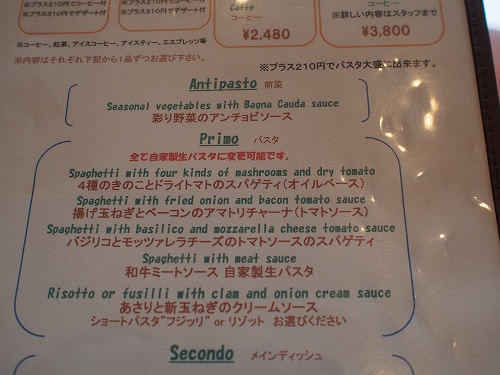 ※プラス210円でデザート付
※プラス310円でデザート付
※プラス210円でデザート付
※プラス310円でデザート付
Caffe
コーヒー
¥2,480
コーヒー
※詳しい内容はスタッフまで
¥3,800
※コーヒー、紅茶、アイスコーヒー、アイスティー、エスプレッソ等
※内容はそれぞれ下記から1品ずつお選び下さい。
※プラス210円でパスタ大盛に出来ます。
Antipasto 前菜
Seasonal vegetables with Bagna Cauda sauce
彩り野菜のアンチョビソース
Primo パスタ
全て自家製生パスタに変更可能です。
Spaghetti with four kinds of mashrooms and dry tomato
4種のきのことドライトマトのスパゲティ(オイルベース)
Spaghetti with fried onion and bacon tomato sauce
揚げ玉ねぎとベーコンのアマトリチャーナ(トマトソース)
Spaghetti with basilico and mozzarella cheese tomato sauce
バジリコとモッツァレラチーズのトマトソースのスパゲティ
Spaghetti with meat sauce
和牛ミートソース 自家製生パスタ
Risotto or fusilli with clam and onion cream sauce
あさりと新玉ねぎのクリームソース
ショートパスタ"フジッリ" or リゾット お選びください
Secondo メインディッシュ